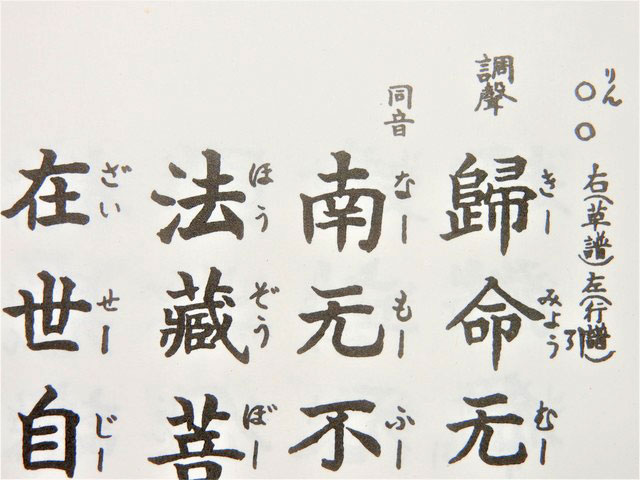 りん
○○ 右(草譜)左(行譜)
調聲
歸命无
きー みよう 引 むー
同音
南无不
なー もー ふー
法藏菩
ほう ぞう ぼー
在世自
ざい せー じー